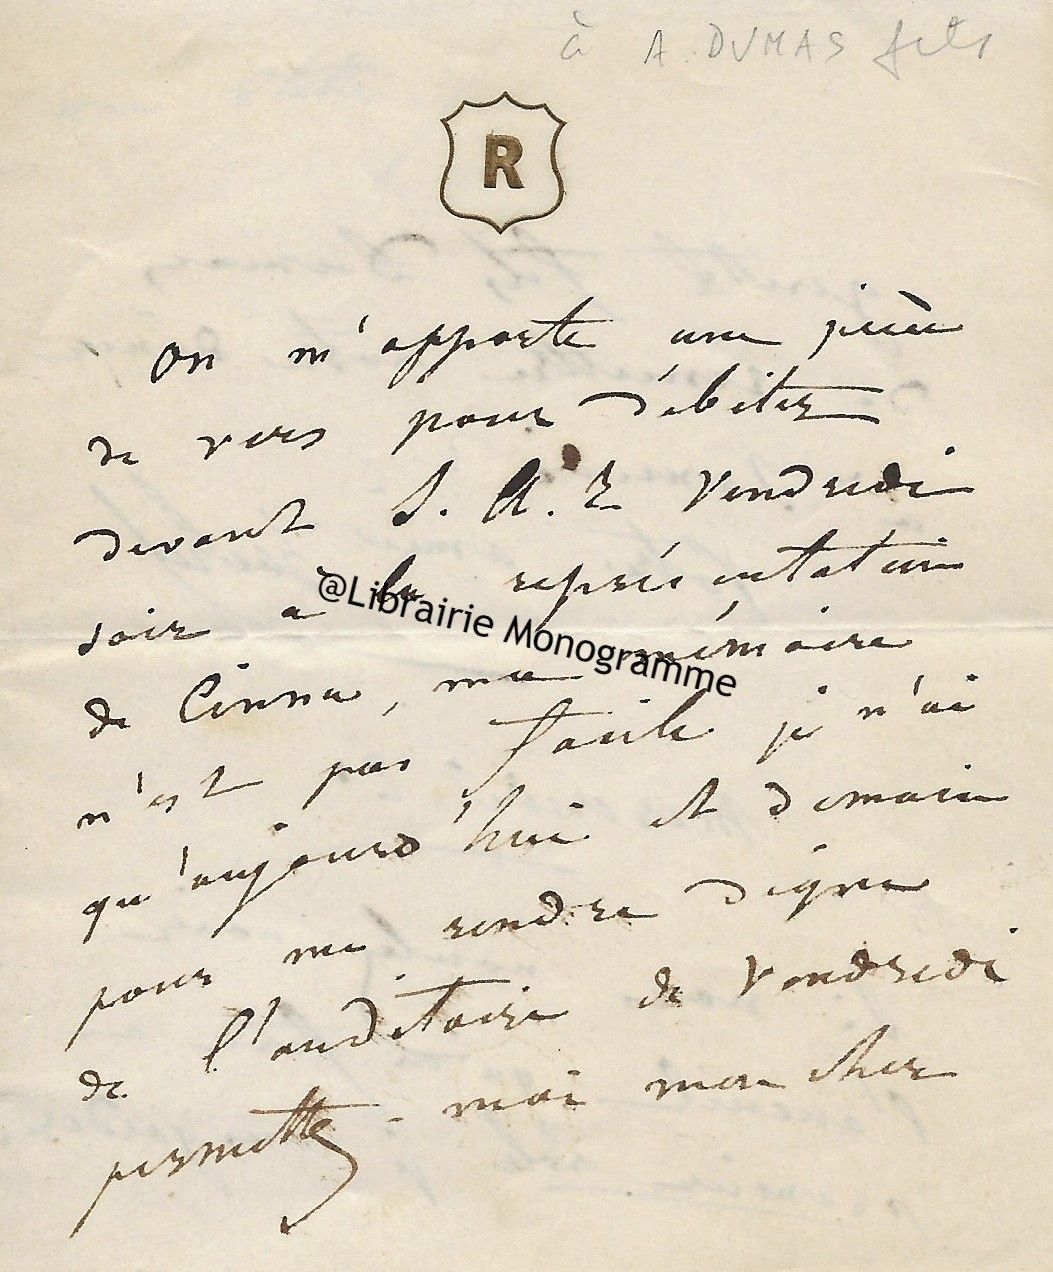 à A. DUMAS fils
R
On m'apporte une pièce
de vers pour débiter
devant S. A. I. Vendredi
soir a la représentation
@Librairie Monogramme
de Cinna, ma mémoire
n'est pas facile je n'ai
qu'aujourd'hui et demain
pour me rendre digne
de l'auditoire de Vendredi
permettez-moi mon cher